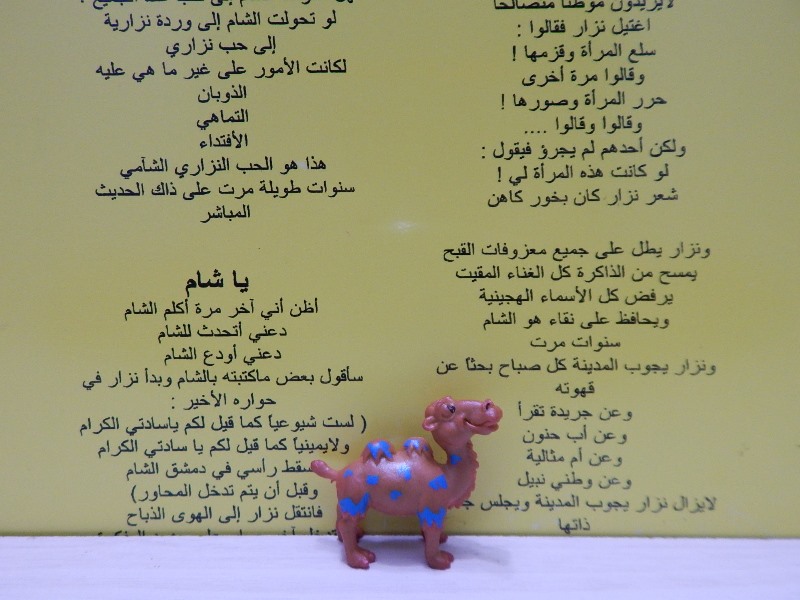 لايريدون موطناً متصالحاً
اغتيل نزار فقالوا :
سلع المرأة وقزمها !
وقالوا مرة أخرى
حرر المرأة وصورها !
وقالوا وقالوا ....
ولكن أحدهم لم يجرؤ فيقول :
لو كانت هذه المرأة لي !
شعر نزار كان بخور كاهن
ونزار يطل على جميع معزوفات القبح
يمسح من الذاكرة كل الغناء المقيت
يرفض كل الأسماء الهجينية
ويحافظ على نقاء هو الشام
سنوات مرت
ونزار يجوب المدينة كل صباح بحثاً عن
قهوته
وعن جريدة تقرأ
وعن أب حنون
وعن أم مثالية
وعن وطني نبيل
لايزال نزار يجوب المدينة ويجلس
ذاتها
لو تحولت الشام إلى وردة نزارية
إلى حب نزاري
لكانت الأمور على غير ما هي عليه
الذوبان
التماهي
الأفتداء
هذا هو الحب النزاري الشآمي
سنوات طويلة مرت على ذاك الحديث
المباشر
يا شام
أظن أني آخر مرة أكلم الشام
دعني أتحدث للشام
دعني أودع الشام
سأقول بعض ماكتبته بالشام وبدأ نزار في
حواره الأخير :
( لست شيوعياً كما قيل لكم ياسادتي الكرام
ولايمينياً كما قيل لكم يا سادتي الكرام
سقط رأسي في دمشق الشام
وقبل أن يتم تدخل المحاور)
فانتقل نزار إلى الهوى الذباح